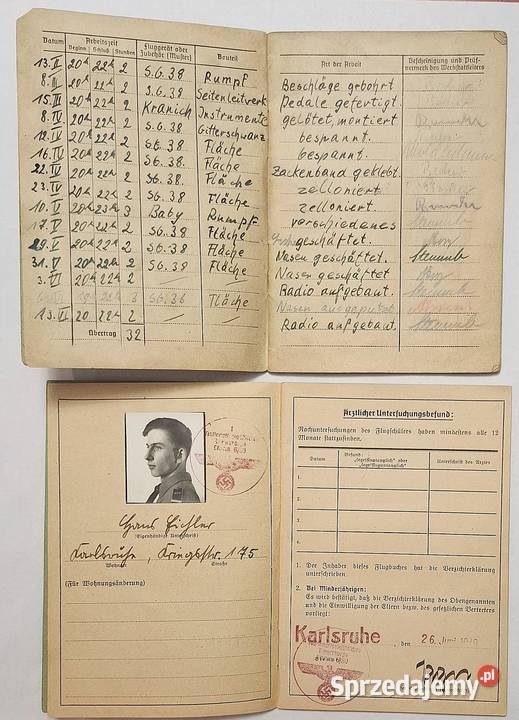 Datum Arbeitszeit Beginn Schluß Stunden Fluggerät oder Zubehör (Muster) Bauteil
13. II 20ʰ 22ʰ 2 S.G. 38 Rumpf
8. III 20ʰ 22ʰ 2 S.G. 38 Seitenleitwerk
15. III 20ʰ 22ʰ 2 Kranich Instrumente
8. IV 20ʰ 22ʰ 2 S.G. 38 Gitterschwanz
12. IV 20ʰ 22ʰ 2 S.G. 38. Fläche
16. IV 20ʰ 22ʰ 2 S.G. 38. Fläche
22. IV 20ʰ 22ʰ 2 S.G. 38. Fläche
23. IV 20ʰ 22ʰ 2 S.G. 38 Fläche
10. V 20ʰ 23ʰ 3 Baby Rumpf
17. V 20ʰ 22ʰ 2 S.G. 38 Fläche
29. V 20ʰ 22ʰ 2 S.G. 38 Fläche
31. V 20ʰ 22ʰ 2 S.G. 38 Fläche
3. VI 20ʰ 22ʰ 2
3 S.G. 38 Fläche
13. VI 20 22ʰ 2
Übertrag 32
Art der Arbeit Bescheinigung und Prüfvermerk des Werkstattleiters
Beschläge gebohrt
Pedale gefertigt.
gelötet, montiert
bespannt.
bespannt.
Zackenband geklebt.
zelloniert.
zelloniert.
verschiedenes
geschäftet.
Nasen geschäftet.
Nasen geschäftet
Radio aufgebaut.
Nasen ausgeputzt
Radio aufgebaut.
Hans Eichler
(Eigenhändige Unterschrift)
Karlsruhe, Kriegsstr. 175
Wohnort Straße
(Für Wohnungsänderung)
Ärztlicher Untersuchungsbefund:
Nachuntersuchungen des Flugschülers haben mindestens alle 12
Monate stattzufinden.
Datum Befund: „segelflugtauglich" oder „segelfluguntauglich" Unterschrift des Arztes
1.
2.
3.
4.
5.
6.
1. Der Inhaber dieses Flugbuches hat die Verzichterklärung
unterschrieben.
2. Bei Minderjährigen:
Es wird bestätigt, daß die Verzichterklärung des Obengenannten
und die Einwilligung der Eltern bezw. des gesetzlichen Vertreters
vorliegt:
Karlsruhe, den 26. Juni
Sprzedajemy.pl